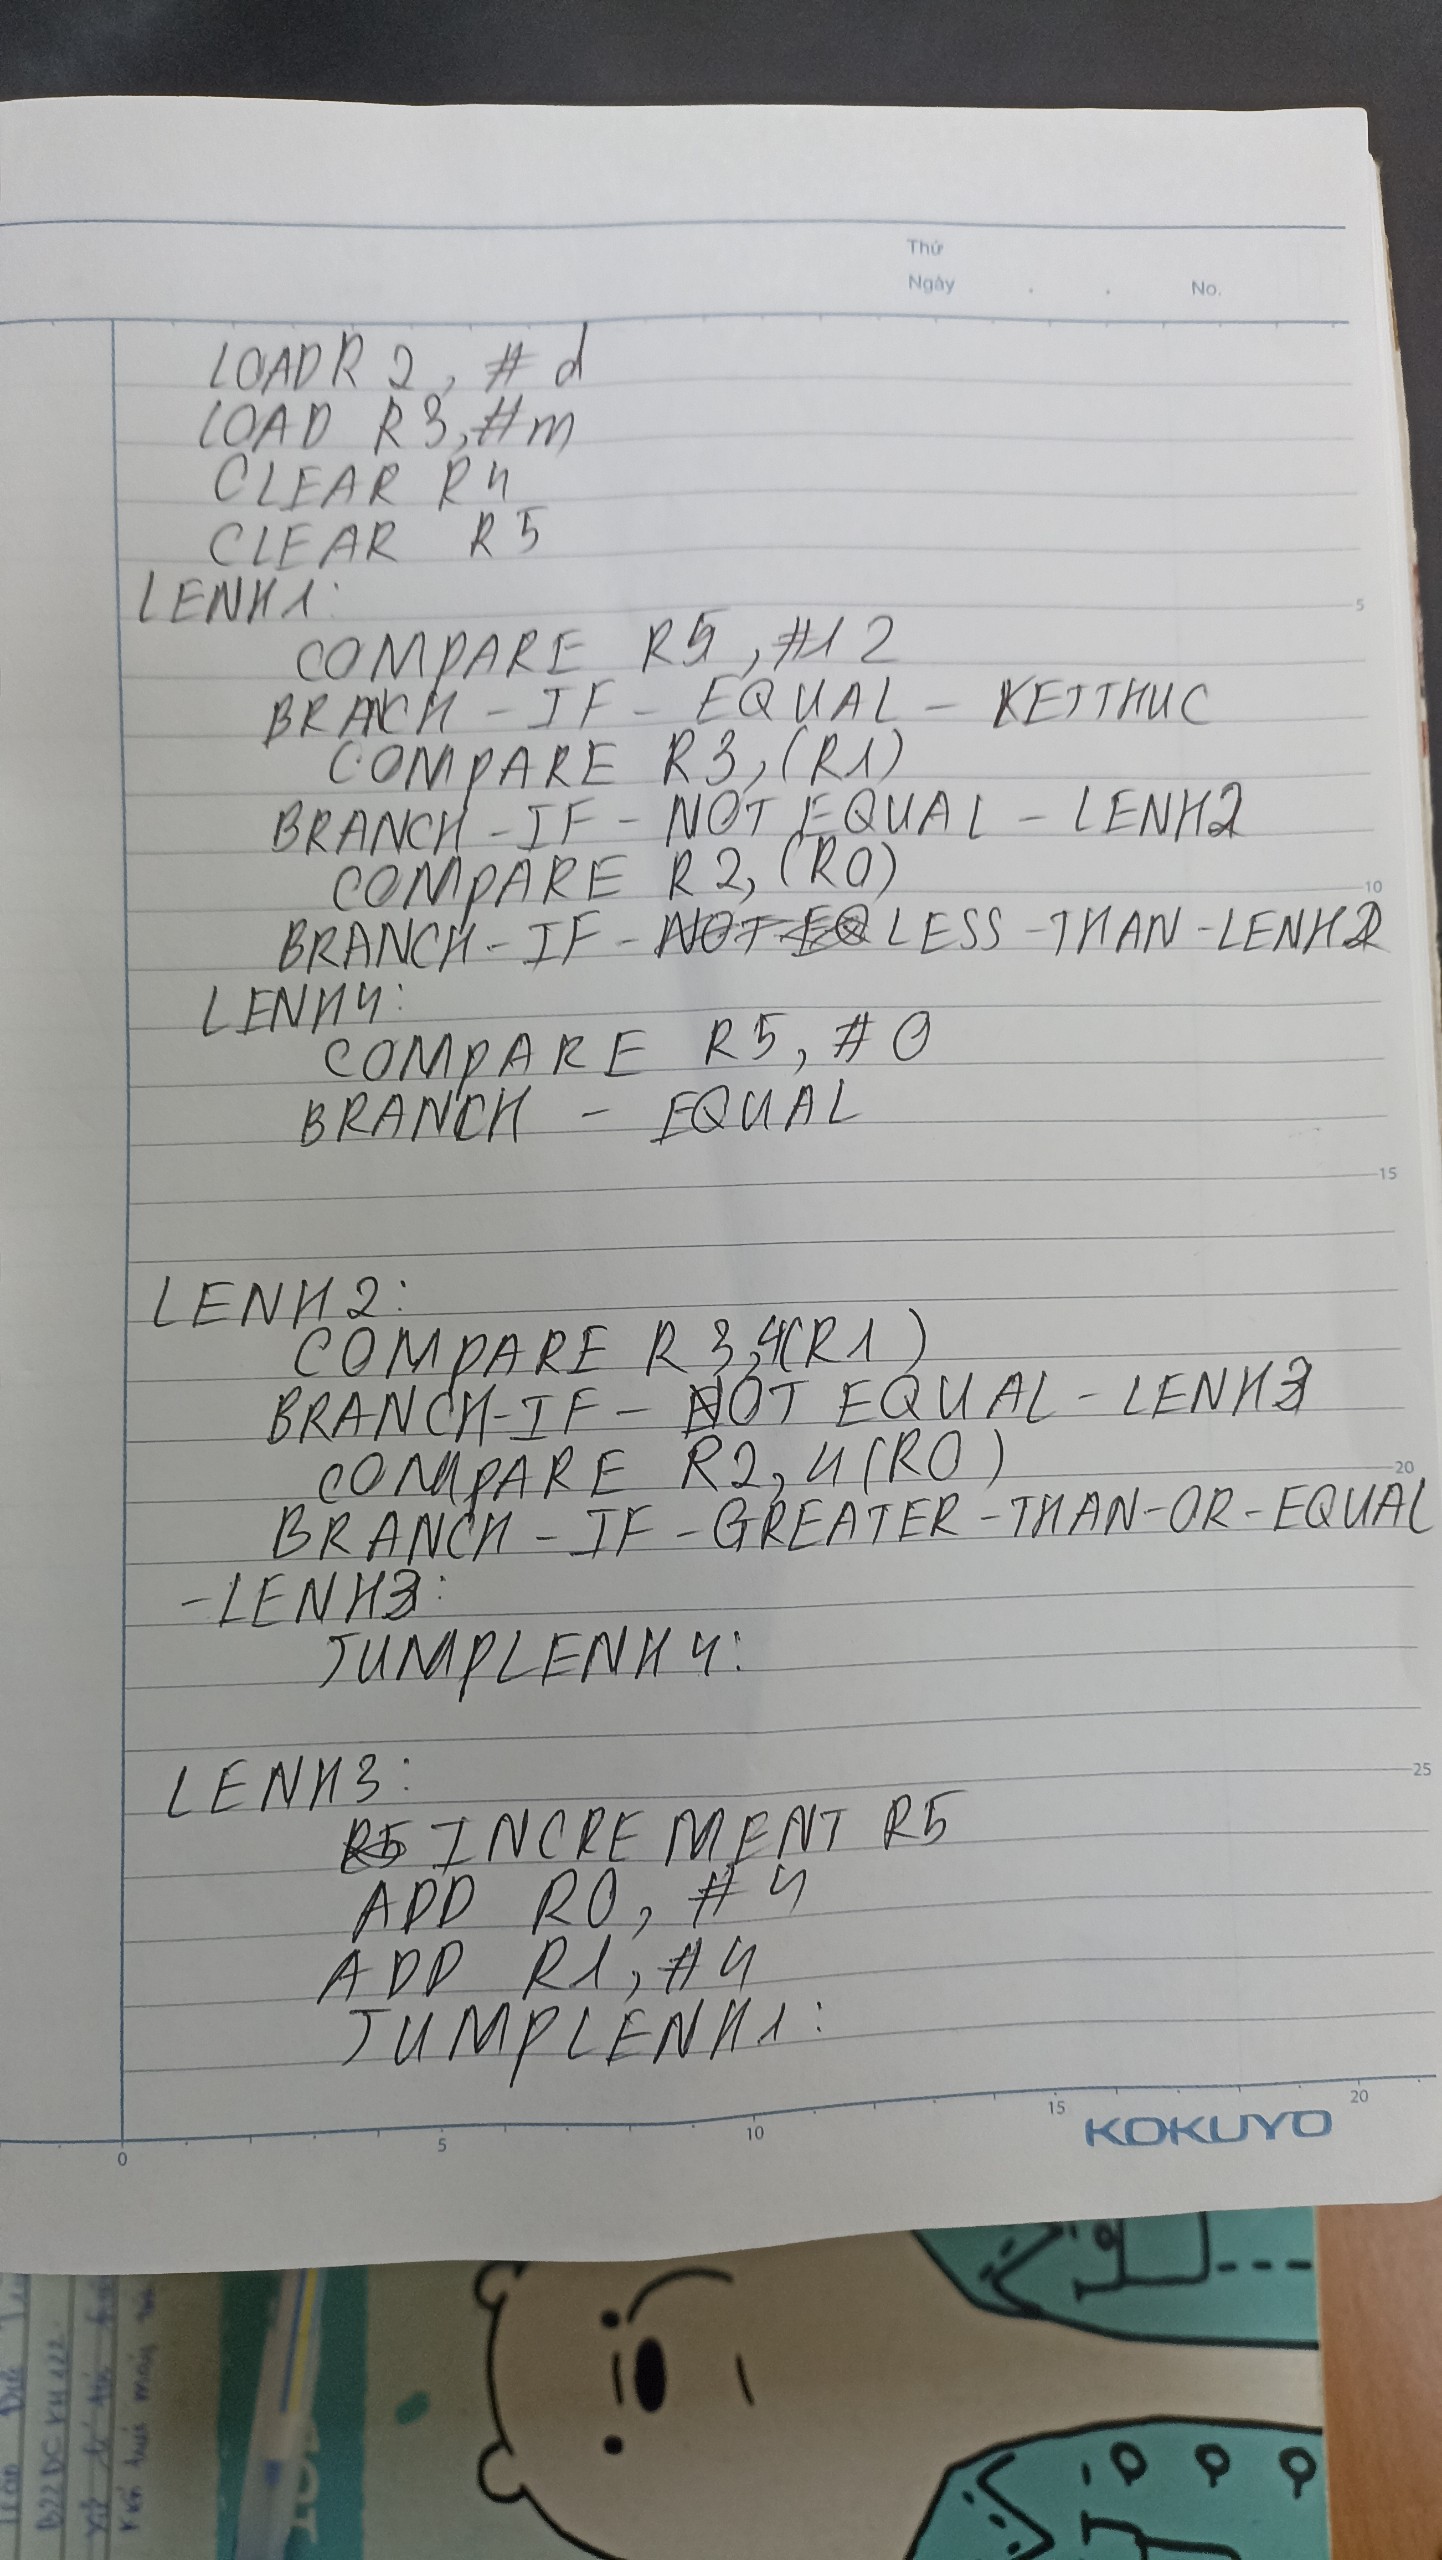 Thứ
Ngày . . No.
LOADR 2, # d
LOAD R3, #m
CLEAR R4
CLEAR R5
LENH1:
5
COMPARE R5, #12
BRANCH-IF- EQUAL - KETTHUC
COMPARE R3, (R1)
BRANCH-IF- NOT EQUAL - LENH2
COMPARE R2, (R0)
10
BRANCH-IF- LESS-THAN-LENH2
LENH4:
COMPARE R5, # 0
BRANCH - EQUAL
15
LENH2:
COMPARE R3, 4(R1)
BRANCH-IF- NOT EQUAL - LENH3
COMPARE R2, 4(R0)
20
BRANCH-IF-GREATER-THAN-OR-EQUAL
-LENH3:
JUMPLENH4:
LENH3:
25
INCREMENT R5
ADD R0, #4
ADD R1, #4
JUMPLENH1:
0 5 10 15 20
KOKUYO
B22DCKH122